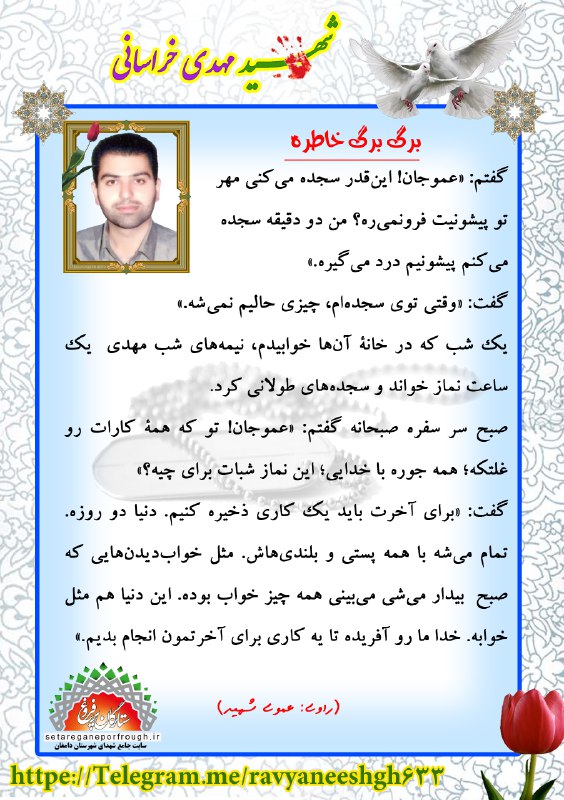 شهید مهدی خراسانی
برگ برگ خاطره
گفتم: «عموجان! این‌قدر سجده می‌کنی مهر
تو پیشونیت فرونمی‌ره؟ من دو دقیقه سجده
می‌کنم پیشونیم درد می‌گیره.»
گفت: «وقتی توی سجده‌ام، چیزی حالیم نمی‌شه.»
یک شب که در خانهٔ آن‌ها خوابیدم، نیمه‌های شب مهدی یک
ساعت نماز خواند و سجده‌های طولانی کرد.
صبح سر سفره صبحانه گفتم: «عموجان! تو که همهٔ کارات رو
غلتکه؛ همه جوره با خدایی؛ این نماز شبات برای چیه؟»
گفت: «برای آخرت باید یک کاری ذخیره کنیم. دنیا دو روزه.
تمام می‌شه با همه پستی و بلندی‌هاش. مثل خواب‌دیدن‌هایی که
صبح بیدار می‌شی می‌بینی همه چیز خواب بوده. این دنیا هم مثل
خوابه. خدا ما رو آفریده تا یه کاری برای آخرتمون انجام بدیم.»
(راوی: عموی شهید)
ستارگان پرفروغ
setareganeporfrough.ir
سایت جامع شهدای شهرستان دامغان
https://Telegram.me/ravyaneeshgh۶۳۳